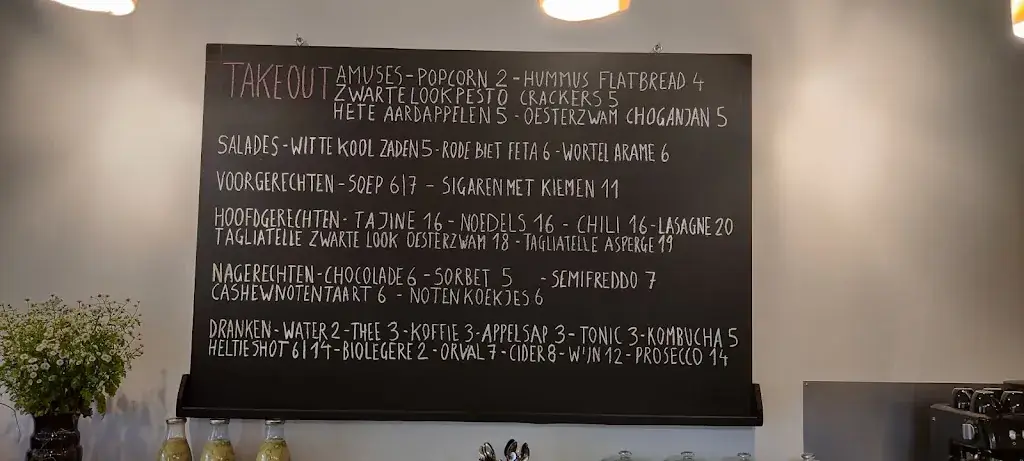 TAKEOUT AMUSES - POPCORN 2 - HUMMUS FLATBREAD 4
ZWARTE LOOK PESTO CRACKERS 5
HETE AARDAPPELEN 5 - OESTERZWAM CHOGANJAN 5
SALADES - WITTE KOOL ZADEN 5 - RODE BIET FETA 6 - WORTEL ARAME 6
VOORGERECHTEN - SOEP 6|7 - SIGAREN MET KIEMEN 11
HOOFDGERECHTEN - TAJINE 16 - NOEDELS 16 - CHILI 16 - LASAGNE 20
TAGLIATELLE ZWARTE LOOK OESTERZWAM 18 - TAGLIATELLE ASPERGE 19
NAGERECHTEN - CHOCOLADE 6 - SORBET 5 - SEMIFREDDO 7
CASHEWNOTENTAART 6 - NOTENKOEKJES 6
DRANKEN - WATER 2 - THEE 3 - KOFFIE 3 - APPELSAP 3 - TONIC 3 - KOMBUCHA 5
HELTIE SHOT 6|14 - BIOLEGERE 2 - ORVAL 7 - CIDER 8 - WIJN 12 - PROSECCO 14